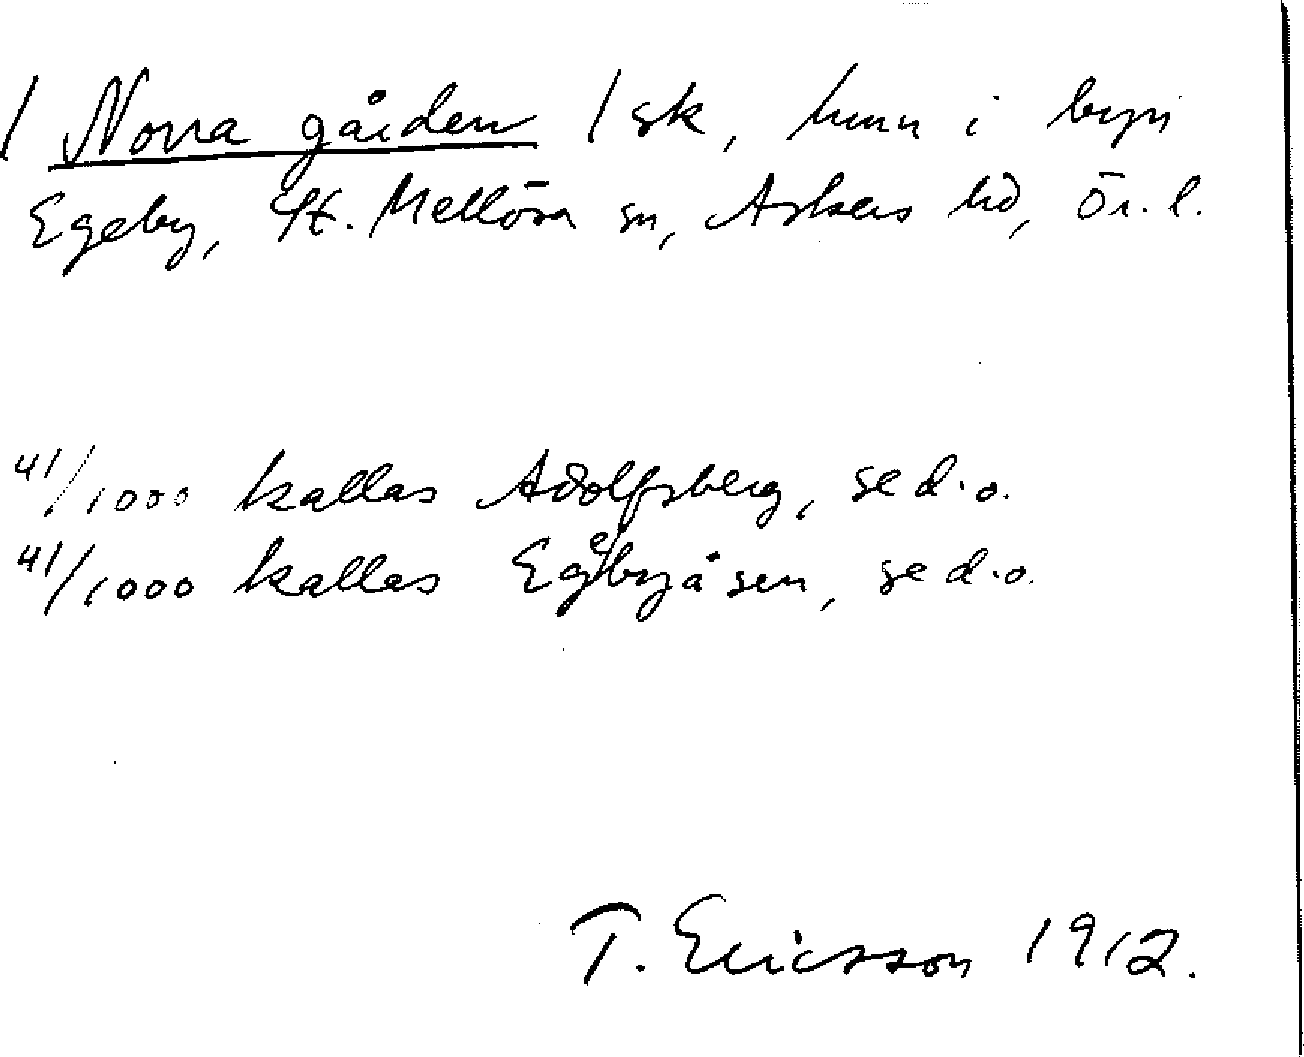 / Norra gården / sk, hmn i byn
Egeby, St. Mellösa sn, Askers hd, Ör. l.
41/1000 kallas Adolfsberg, se d.o.
41/1000 kallas Egebyåsen, se d.o.
T. Ericsson 1912.